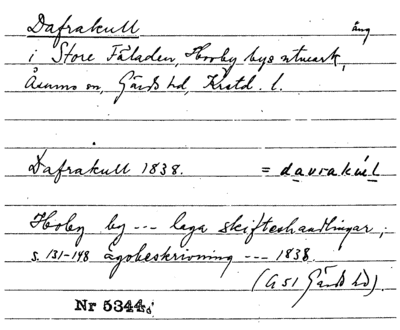 Dafrakull äng
i Store Fäladen, Horby bys utmark,
Åsums sn, Gärds hd, Krstd. l.
Dafrakull 1838. = davrakúl
Hoby by --- laga skifteshandlingar;
s. 131-148 Ägobeskrivning --- 1838.
(G 51 Gärds hd).
Nr 5344.